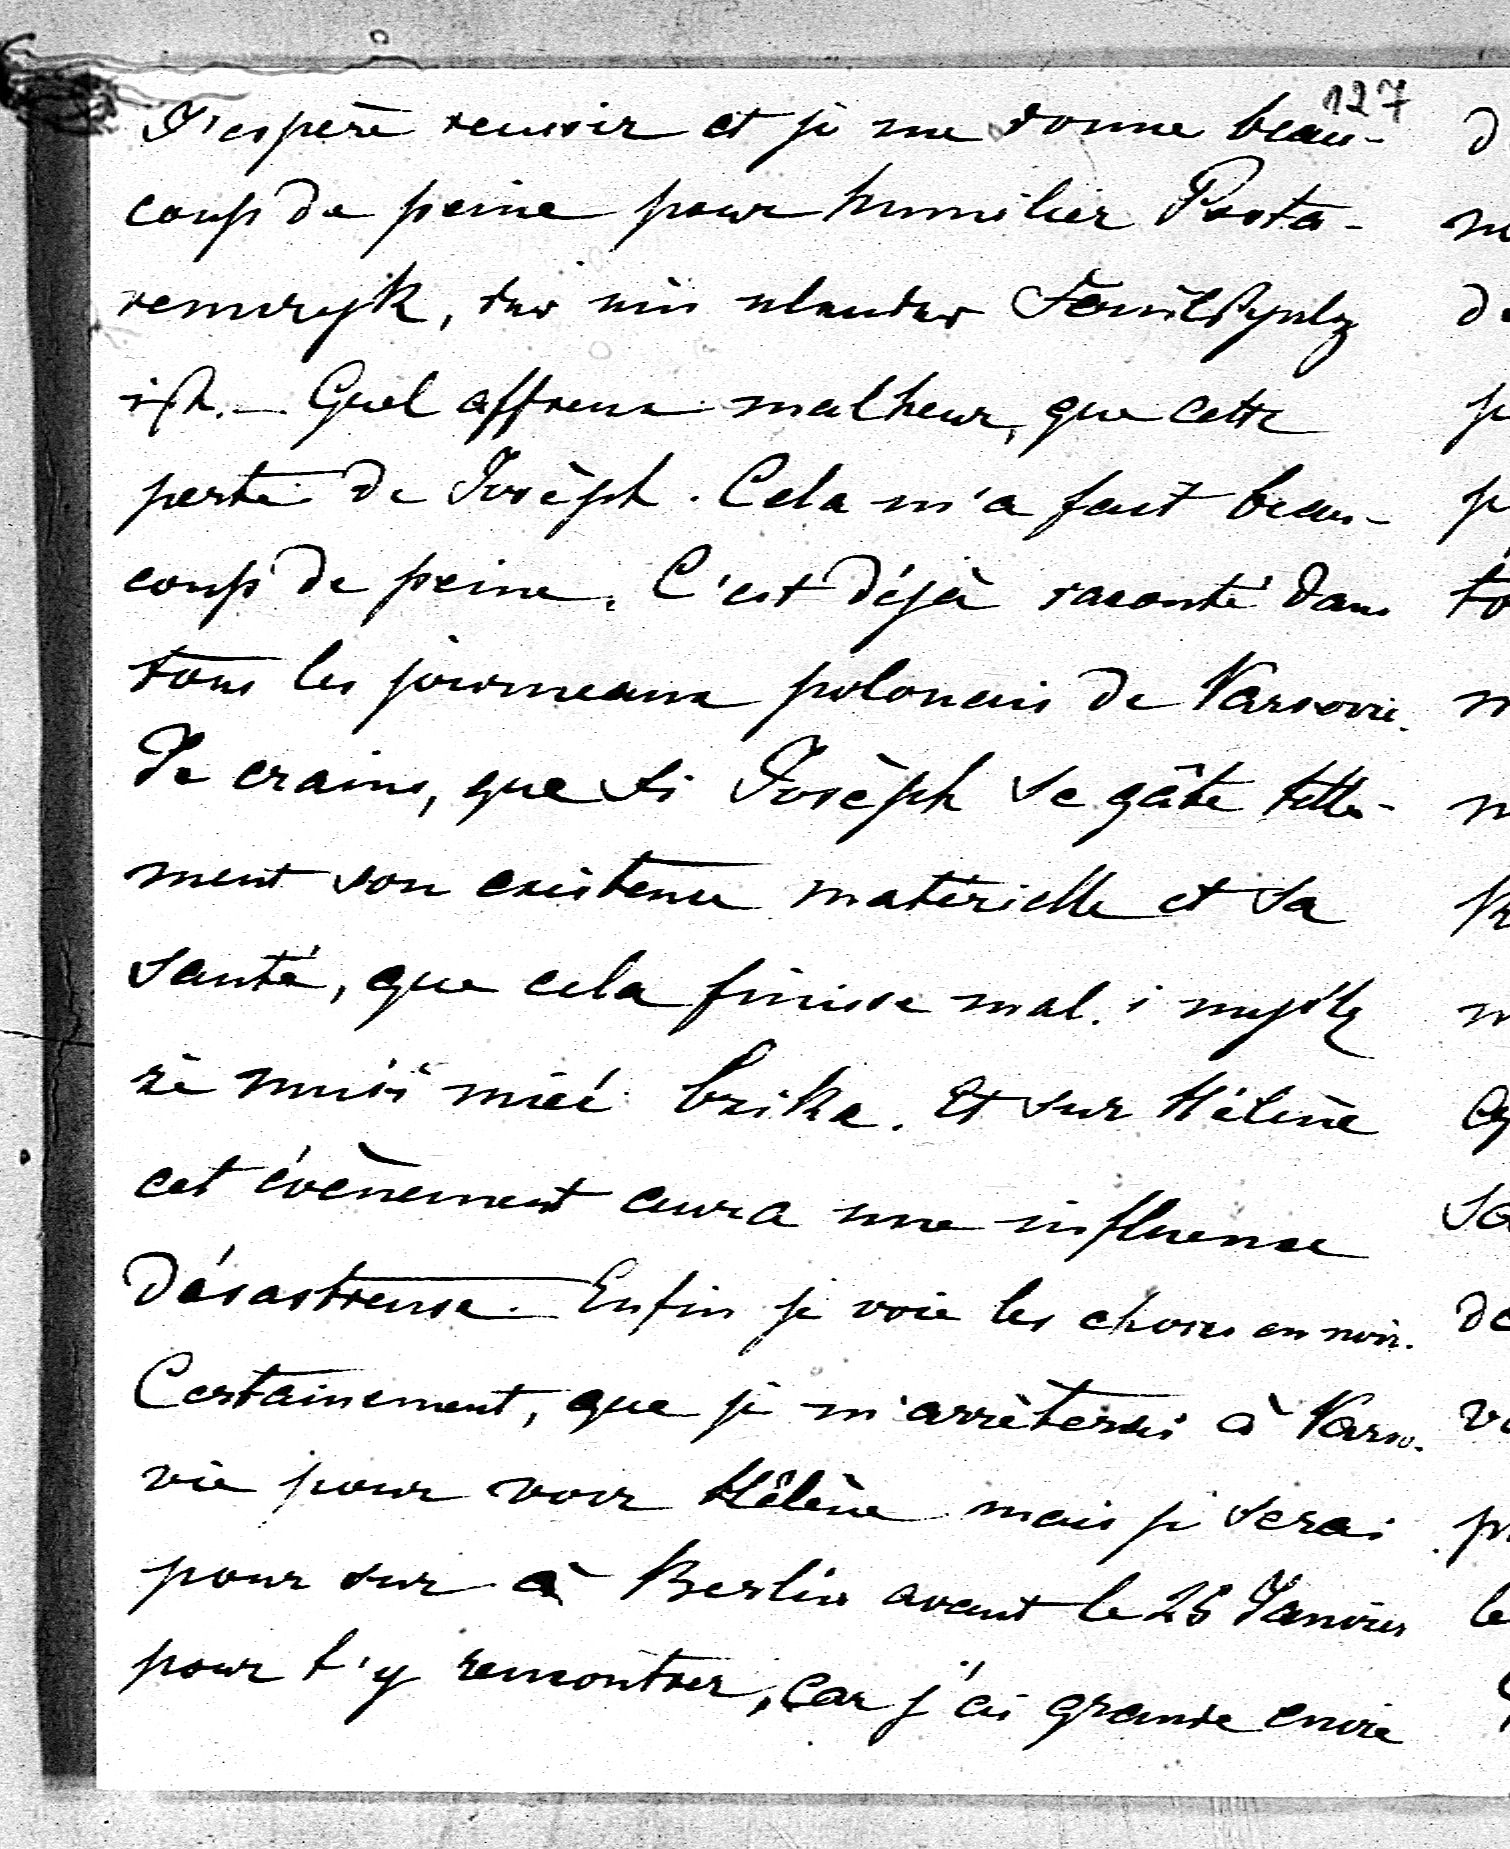 127
J'espère reussir et je me donne beau-
coup de peine pour humilier Posta-
remczyk, der ein elender
ist. — Quel affreux malheur, que cette
perte de Josèph. Cela m'a fait beau-
coup de peine. C'est déjà raconté dans
tous les journeaux polonais de Varsovie.
Je crains, que si Josèph se gâte telle-
ment son existence matérielle et sa
santé, que cela finisse mal. i myślę
że musi mieć bzika. Et sur Hélène
cet évènement aura une influence
désastreuse. Enfin je voie les choses en noir.
Certainement, que je m'arrêterai à Varso-
vie pour voir Hélène mais je serai
pour sur à Berlin avant le 25 Janvier
pour t'y rencontrer, car j'ai grande envie